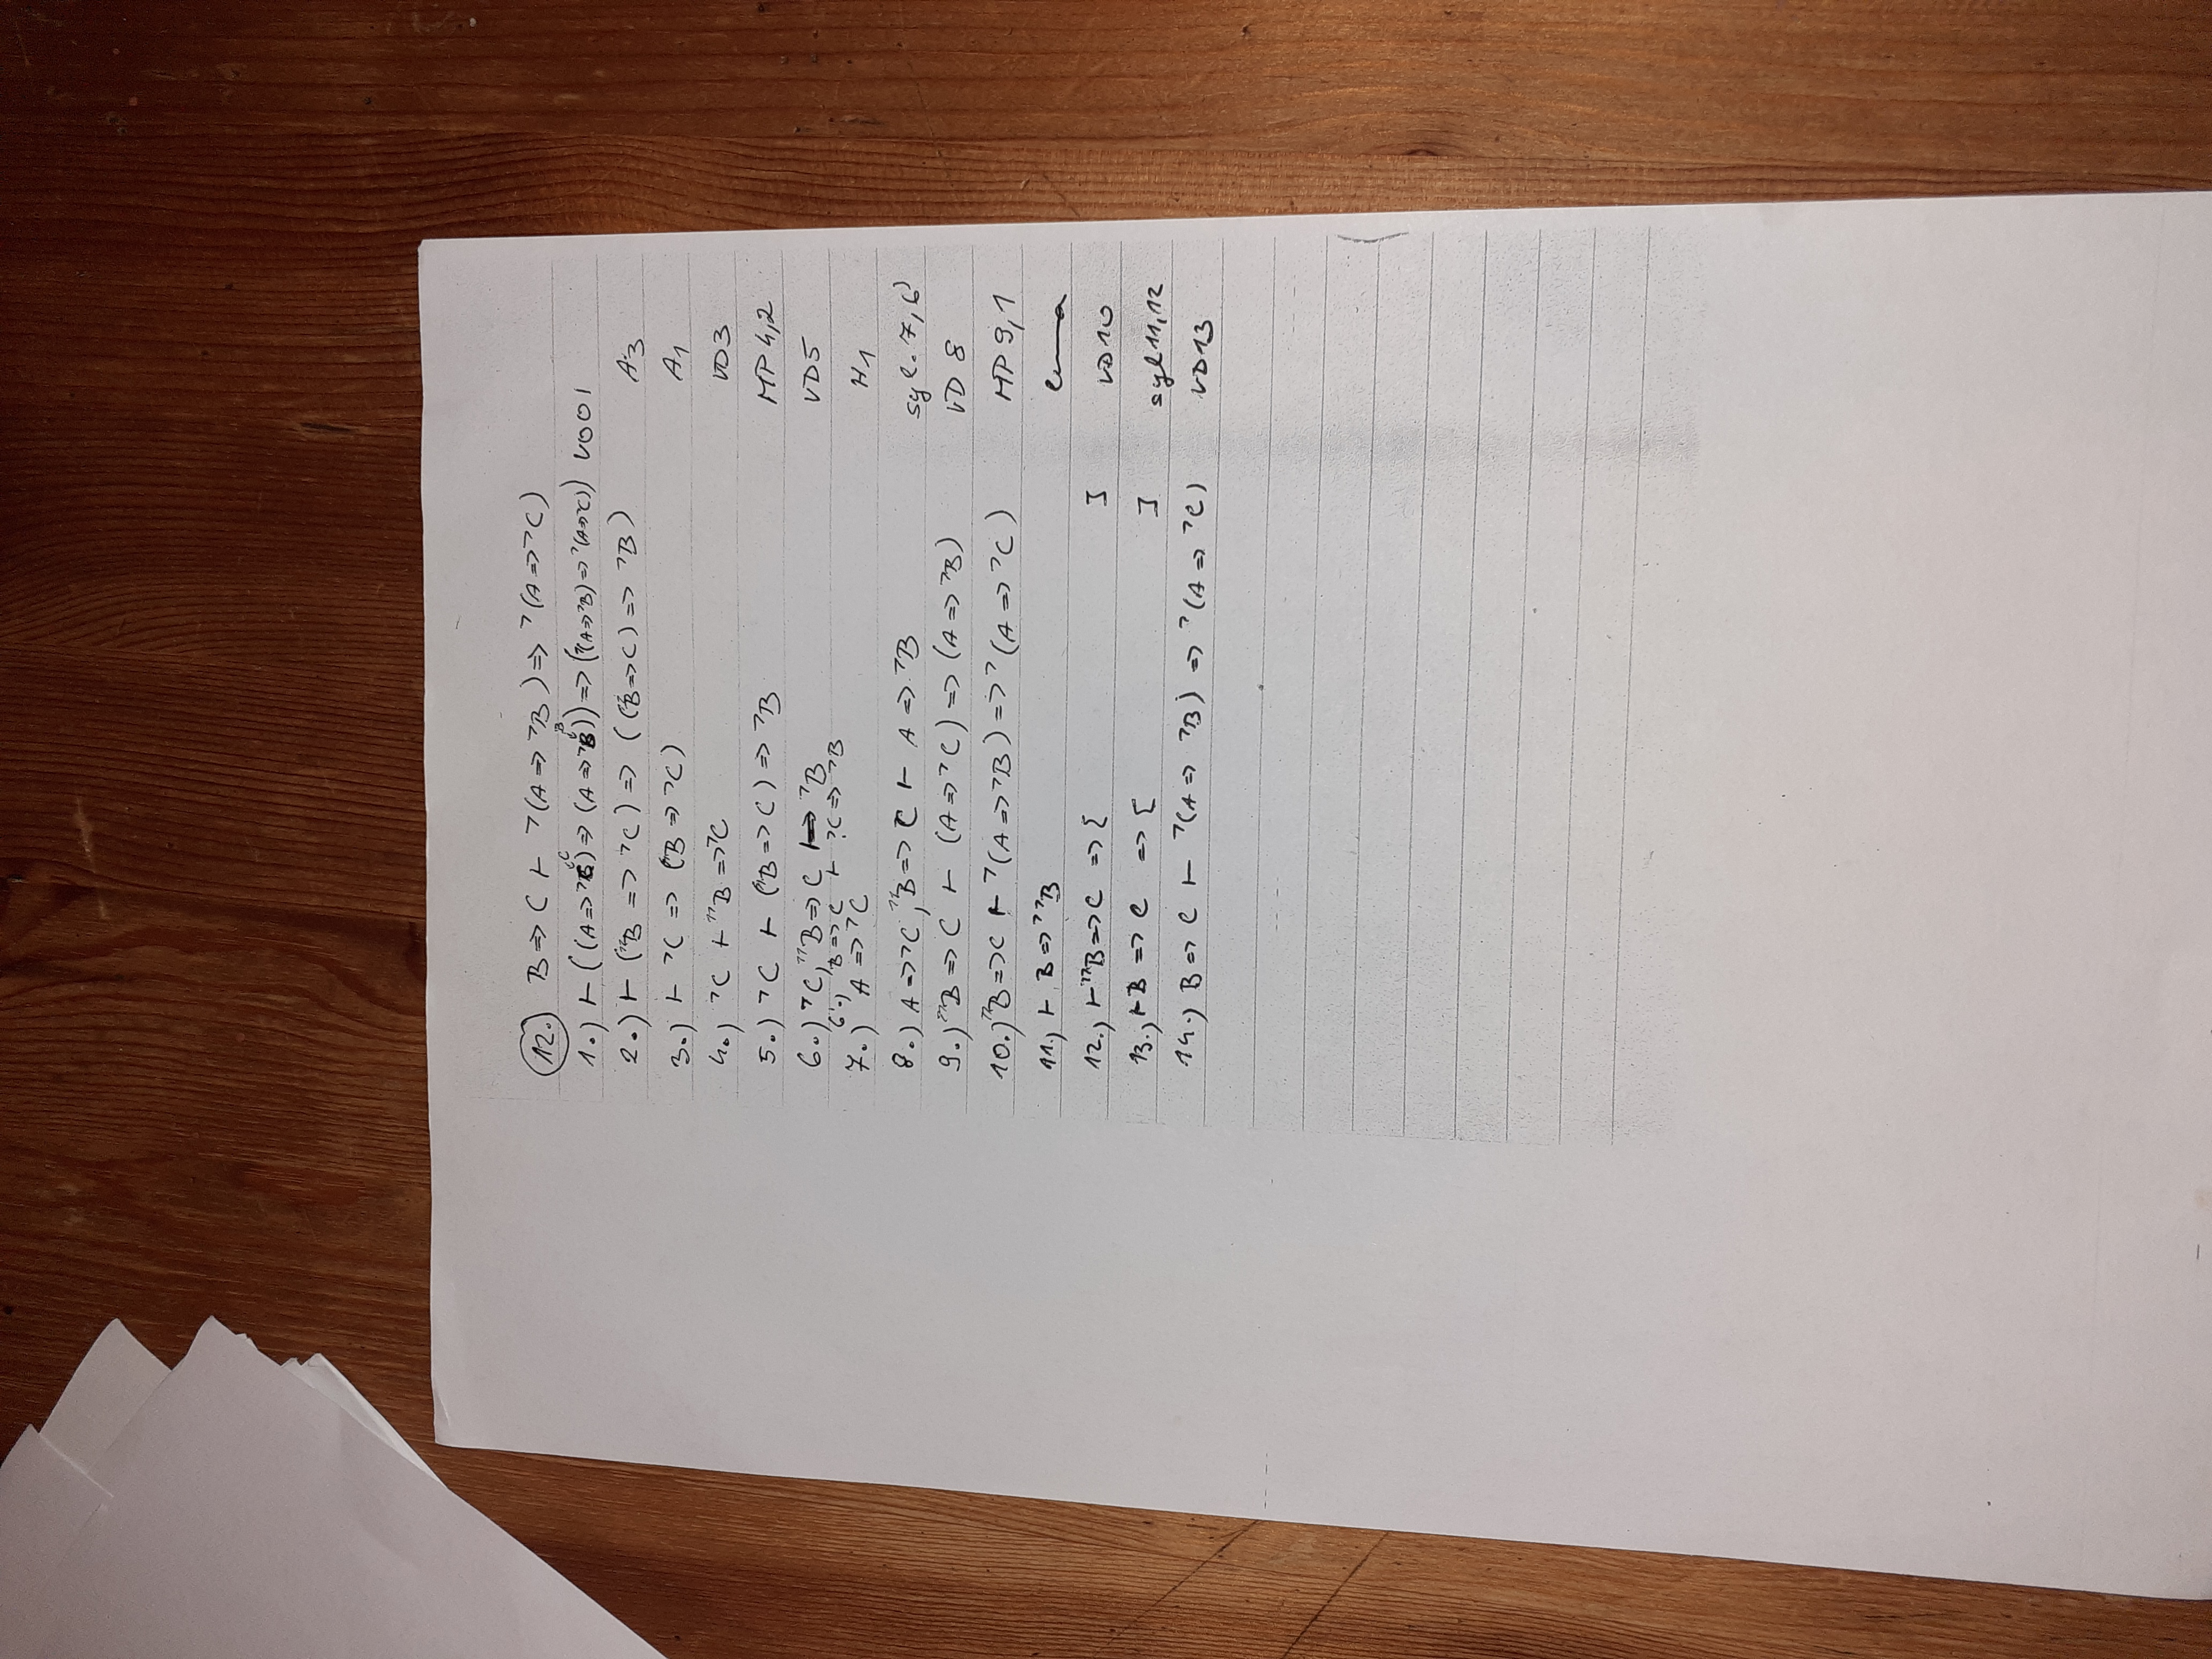 12.) B => C ⊢ ¬(A => ¬B) => ¬(A => ¬C)
C B
1.) ⊢ ((A => ¬C) => (A => ¬B)) => (¬(A => ¬B) => ¬(A => ¬C)) VOOI
2.) ⊢ (¬¬B => ¬C) => ((¬¬B => C) => ¬B) A3
3.) ⊢ ¬C => (¬¬B => ¬C) A1
4.) ¬C ⊢ ¬¬B => ¬C VD3
5.) ¬C ⊢ (¬¬B => C) => ¬B MP 4,2
6.) ¬C, ¬¬B => C ⊢ ¬B VD5
6'.) ¬¬B => C ⊢ ¬C => ¬B
7.) A => ¬C H1
8.) A => ¬C, ¬¬B => C ⊢ A => ¬B syl. 7,6'
9.) ¬¬B => C ⊢ (A => ¬C) => (A => ¬B) VD 8
10.) ¬¬B => C ⊢ ¬(A => ¬B) => ¬(A => ¬C) MP 9,1
11.) ⊢ B => ¬¬B
12.) ⊢ ¬¬B => C => [ ] VD10
13.) ⊢ B => C => [ ] syl 11,12
14.) B => C ⊢ ¬(A => ¬B) => ¬(A => ¬C) VD13